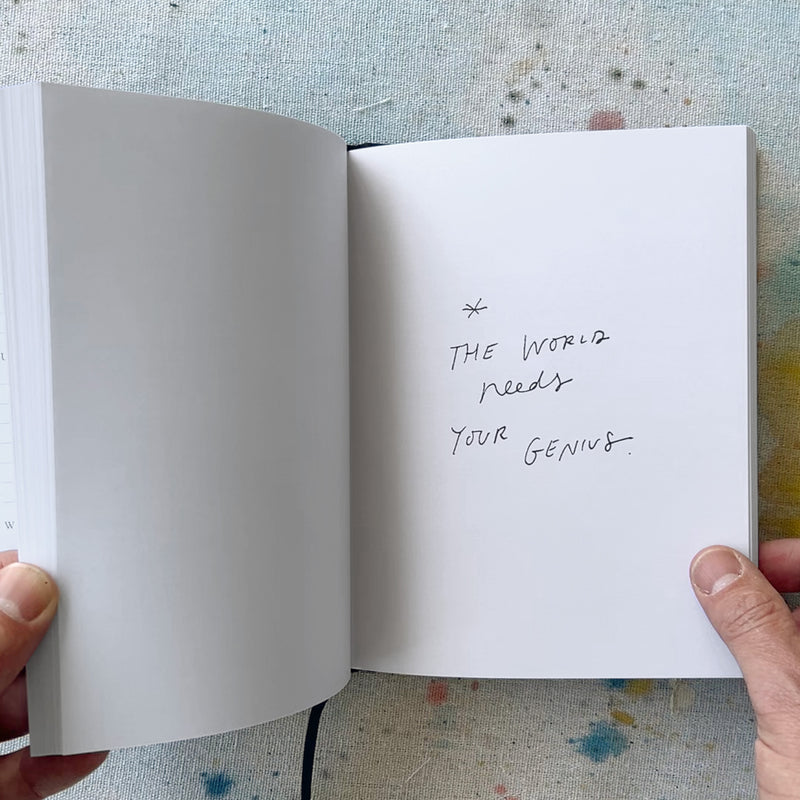 *
THE WORLD
needs
YOUR GENIUS.
W